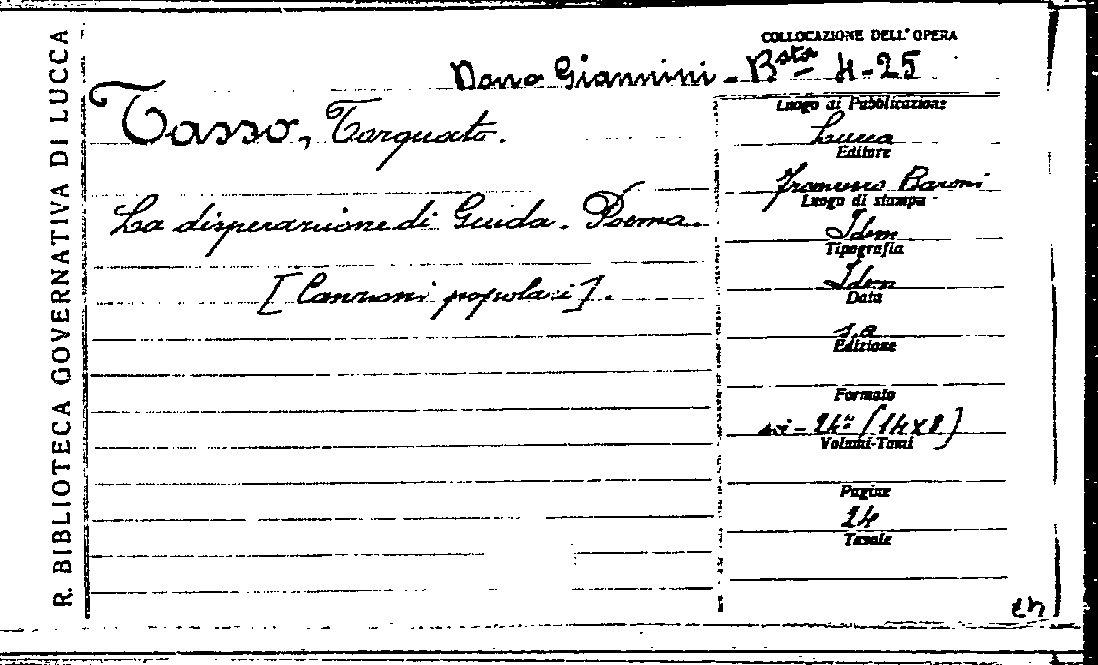 R. BIBLIOTECA GOVERNATIVA DI LUCCA
COLLOCAZIONE DELL'OPERA
Dono Giannini - Bsta 4-25
Tasso, Torquato.
La disperazione di Giuda. Poema.
[Canzoni popolari].
Luogo di Pubblicazione
Lucca
Editore
Francesco Baroni
Luogo di stampa
Idem
Tipografia
Idem
Data
s.a.
Edizione
Formato
in-24° (14x8)
Volumi-Tomi
Pagine
24
Tavole